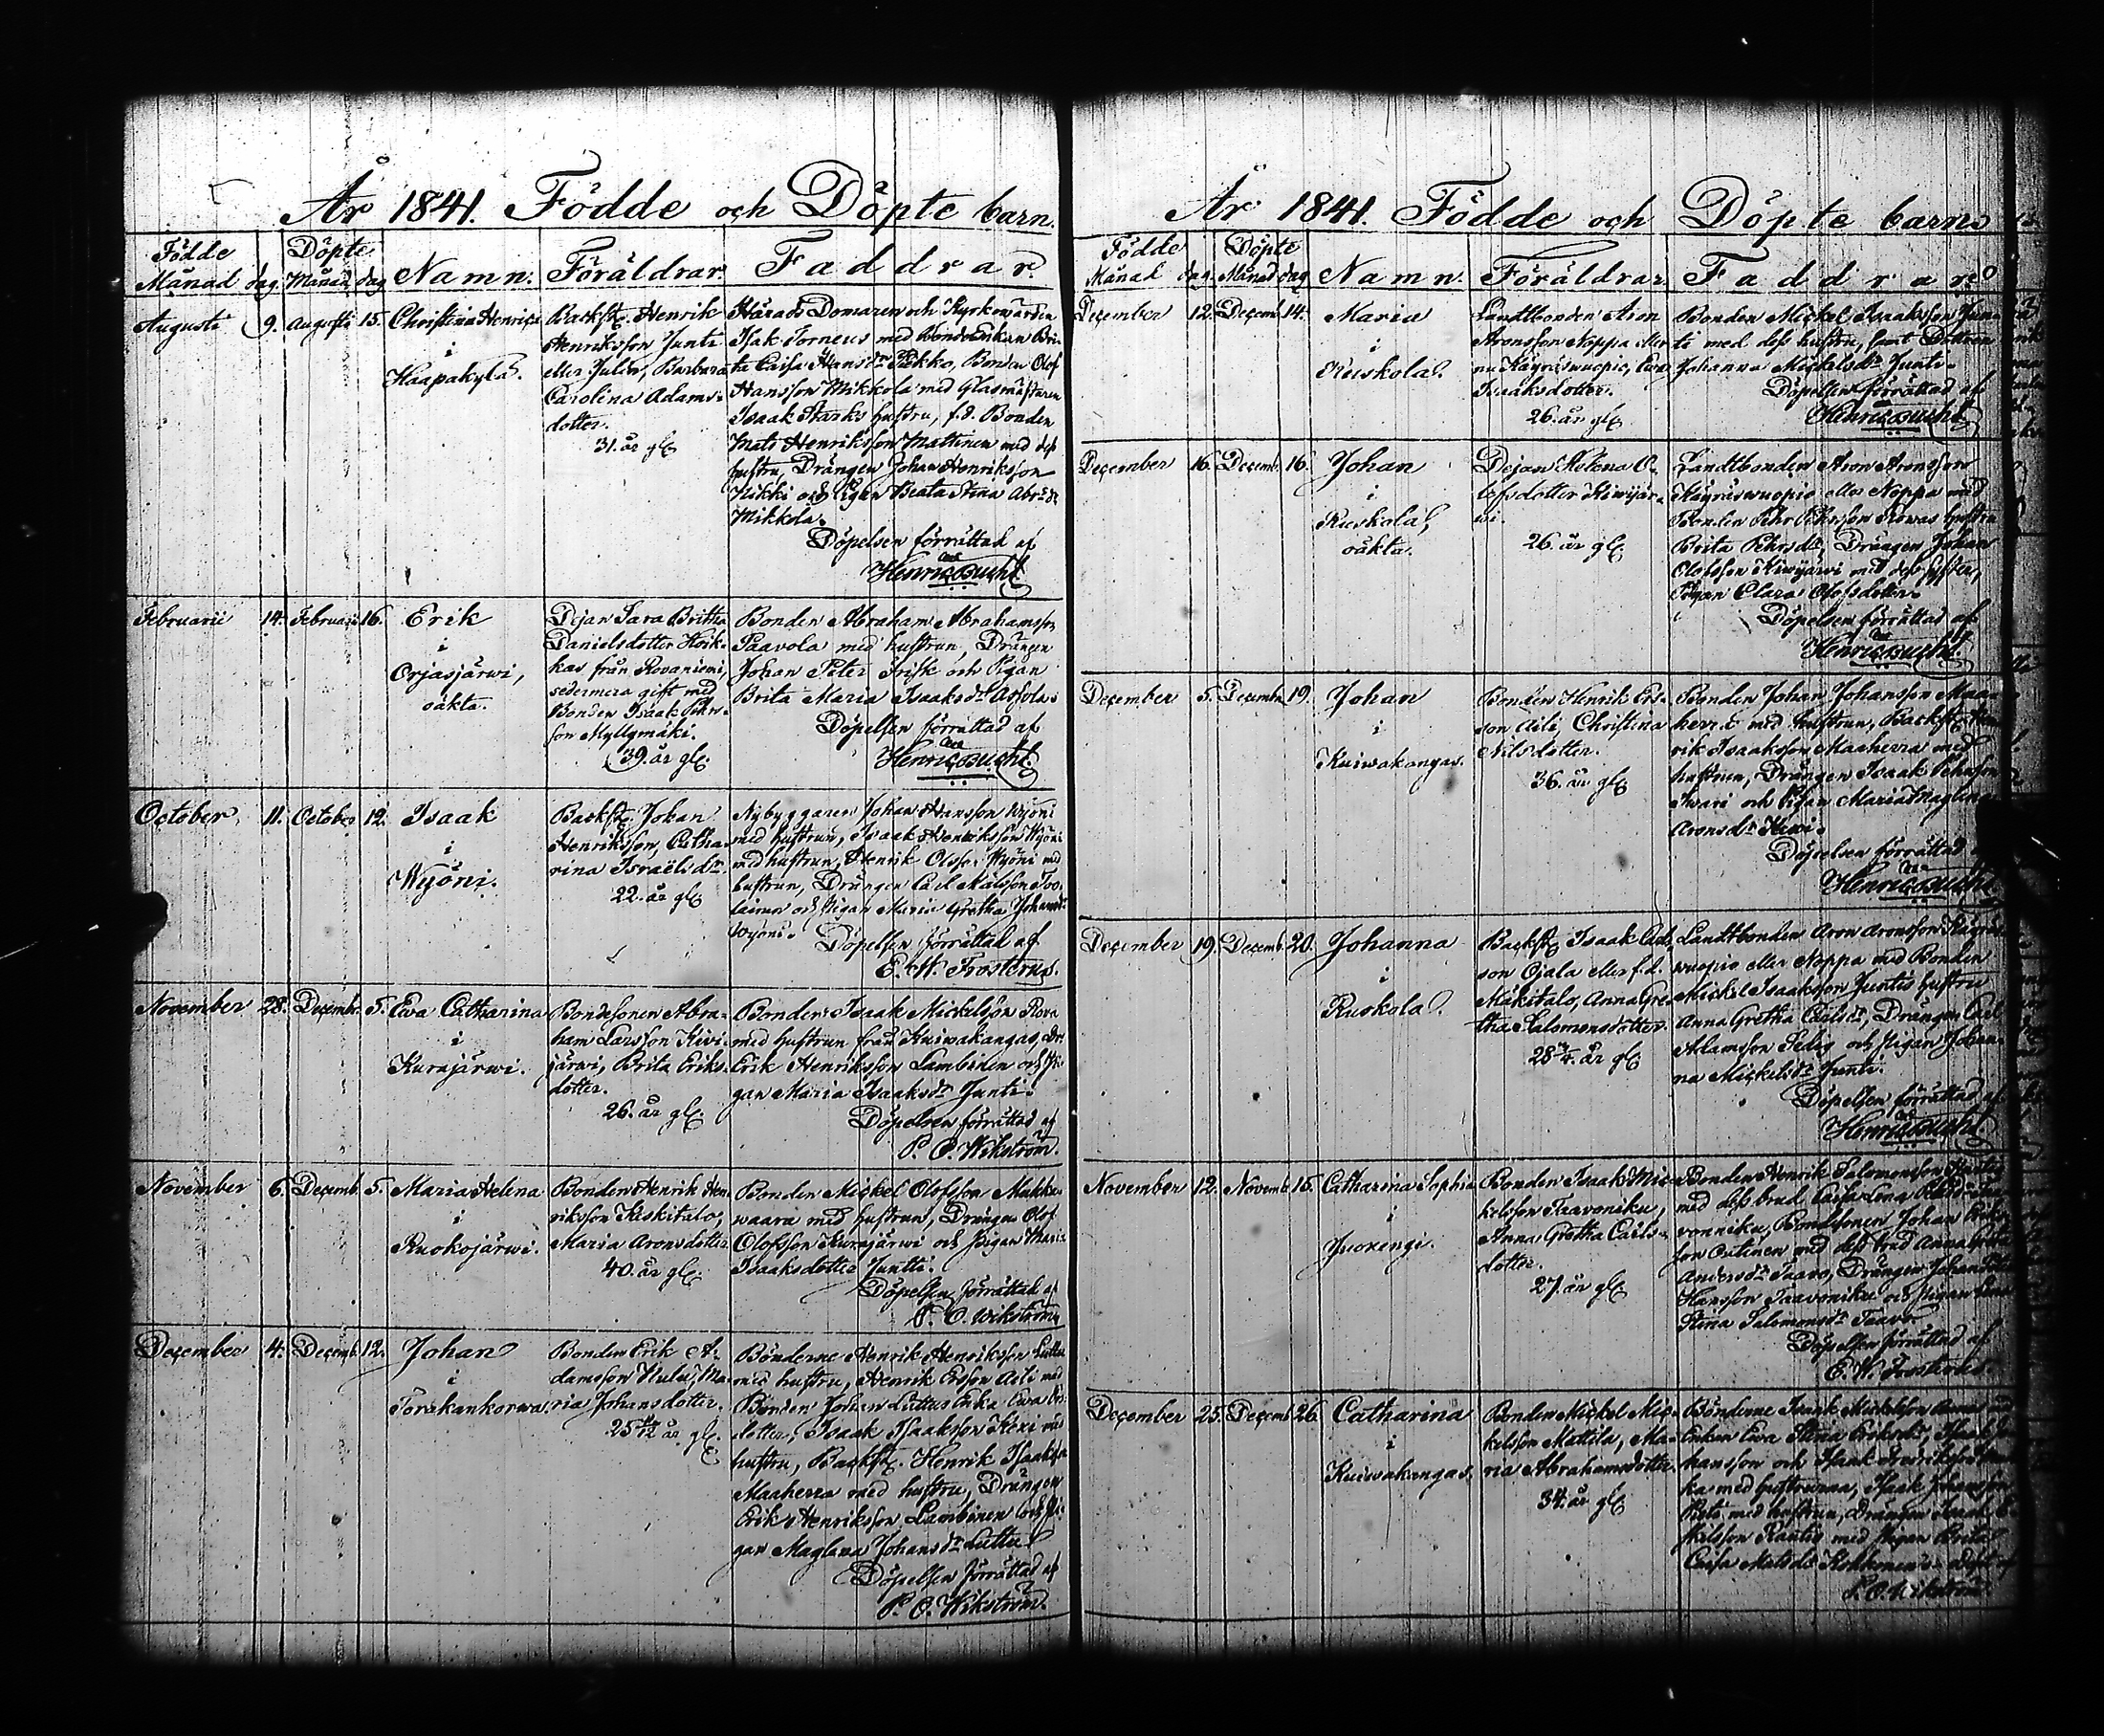 År 1841. Födde och Döpte barn.
Födde Döpte
Månad dag. Månad dag Namn. Föräldrar. Faddrar
Augusti 9. Augusti 15. Christina Henrica
i
Haapakylä.
Backst. Henrik
Henriksson Junti
eller Julen, Barbara
Carolina Adams-
dotter.
31. år gl.
Härads Domaren och Kyrkowärden
Isak Torneus med Bonde Enkan Bri-
ta Caisa Hansdr Pekko, Bonden Olof
Hansson Mikkola med Glasmästaren
Isaak Starks hustru, f.d. Bonden
Mats Henriksson Mattinen med dess
hustru, Drängen Johan Henriksson
Nikki och Pigan Beata Stina Abr.dr
Mikkola.
Döpelsen förrättad af
Henric Bucht
Februarii 14. Februarii 16. Erik
i
Orjasjärwi,
oäkta.
Pejan Sara Britha
Danielsdotter
från Rovaniemi,
sedermera gift med
Bonden Isaak Pehrs-
son Myllymäki.
39. år gl.
Bonden Abraham Abrahamsson
Paavola med hustrun, Drängen
Johan Peter Frisk och Pigan
Brita Maria Isaaksdr
Döpelsen förrättad af
Henric Bucht.
October 11. October 12. Isaak
i
Wyöni.
Backst. Johan
Henriksson, Catha-
rina Israelsdr
22. år gl.
Nybyggaren Johan Hansson Wyöni
med hustrun, Isaak Henriksson Wyöni
med hustrun, Henrik Olsson Wyöni med
hustrun, Drängen Carl Matsson
och Pigan Maria Gretha Johansdr
Wyöni. Döpelsen förrättad af
E. W. Frosterus.
November 28. Decembr. 5. Ewa Catharina
i
Kurajärwi.
Bondesonen Abra-
ham Larsson Kiwi-
järwi, Brita Eriks-
dotter.
26. år gl.
Bonden Isaak Mickelsson Rova
med hustrun från Kuiwakangas, Dr.
Erik Henriksson Lambinen och Pi-
gan Maria Isaaksdr Junti.
Döpelsen förrättad af
P. O. Wikström.
November 6. Decemb. 5. Maria Helena
i
Ruokojärwi.
Bonden Henrik Hen-
riksson Keskitalo,
Maria Aronsdotter
40. år gl.
Bonden Mickel Olofsson Mukka-
waara med hustrun, Drängen Olof
Olofsson Kurajärwi och Pigan Maria
Isaaksdotter Juntti.
Döpelsen förrättad af
P. O. Wikström
December 4. Decemb. 12. Johan
i
Torakankorwa.
Bonden Erik A-
damsson Hulu, Ma-
ria Johansdotter.
25 år gl.
Bönderne Henrik Henriksson Luttu
med hustru, Henrik Ersson Aili med
Bonden Johan Luttus Enka Ewa Ers-
dotter, Isaak Isaaksson Keksi med
hustru, Backst. Henrik Isaaksson
Maaherra med hustru, Drängen
Erik Henriksson Lambinen och Pi-
gan Maglena Johansdr Luttu
Döpelsen förrättad af
P. O. Wikström.
År 1841. Födde och Döpte barn.
Födde Döpte
Månad dag. Månad dag Namn. Föräldrar. Faddrare
December 12. Decemb. 14. Maria
i
Ruskola.
Landtbonden Aron
Aronsson Noppa eller
Käyräswuopio, Ewa
Isaaksdotter.
26. år gl.
Bonden Mickel Isaaksson Jun-
ti med dess hustru, samt Dottren
Johanna Mickelsdr Junti.
Döpelsen förrättad af
Henric Bucht
December 16. Decemb. 16. Johan
i
Ruskola,
oäkta.
Pejan Helena O-
lofsdotter Kiwijär-
wi.
26. år gl.
Landtbonden Aron Aronsson
Käyräswuopio eller Noppa med
Bonden Pehr Pehrsson Rowas hustru
Brita Pehrsdr, Drängen Johan
Olofsson Kiwijärwi med dess syster,
Pigan Clara Olofsdotter.
Döpelsen förrättad af
Henric Bucht
December 5. Decemb. 19. Johan
i
Kuiwakangas.
Bonden Henrik Ers-
son Aili, Christina
Nilsdotter.
36. år gl.
Bonden Johan Johansson Maa-
herra med hustrun, Backst. Hen-
rik Isaaksson Maaherra med
hustrun, Drängen Isaak Pehrsson
Iwari och Pigan Maria Maglena
Aronsdr Kiwi.
Döpelsen förrättad
Henric Bucht
December 19. Decemb. 20. Johanna
i
Ruskola.
Backst. Isaak Carls-
son Ojala eller f.d.
Mäkitalo, Anna Gre-
tha Salomonsdotter.
28 år gl.
Landtbonden Aron Aronsson Käyräs-
wuopio eller Noppa med Bonden
Mickel Isaaksson Juntis hustru
Anna Gretha Carlsdr, Drängen Carl
Adamsson och Pigan Johan-
na Mickelsdr Junti.
Döpelsen förrättad af
Henric Bucht
November 12. Novemb. 15. Catharina Sophia
i
Juoxengi.
Bonden Isaak Mic-
kelsson Taavoniku,
Anna Gretha Carls-
dotter.
27. år gl.
Bonden Henrik Salomonsson
med dess brud Caisa Lena
voniku, Bondesonen Johan Eriks-
son med dess brud Anna Gretha
Andersdr Taavo, Drängen Johan
Hansson Taavoniku och Pigan
Stina Salomonsdr Taavo
Döpelsen förrättad af
E. W. Frosterus.
December 25. Decemb. 26. Catharina
i
Kuiwakangas.
Bonden Mickel Mic-
kelsson Mattila, Ma-
ria Abrahamsdotter.
34. år gl.
Bönderne Isaak Mickelsson
Enkan Ewa Stina Eriksdr, Isaak Jo-
hansson och Isaak
med hustrurna, Isaak Johansson
med hustrun, Drängen Isaak
Rantis med Pigan Brita
Caisa Matsdr
P. O. Wikström